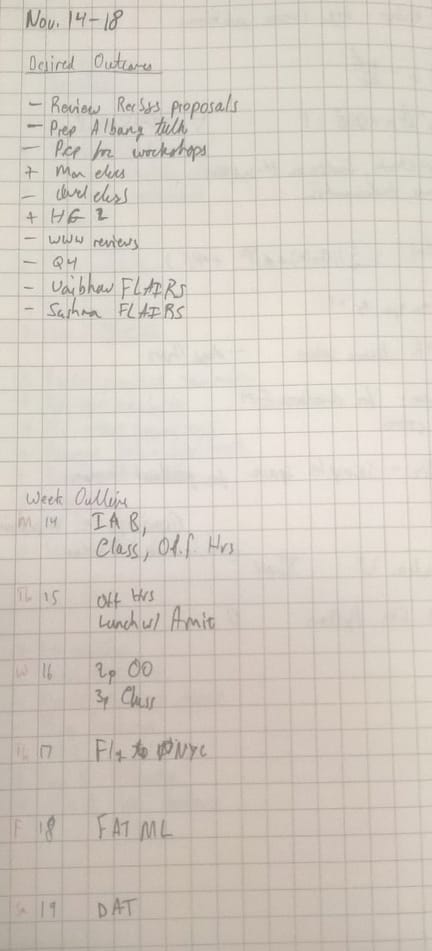 Nov. 14-18
Desired Outcomes
- Review RecSys proposals
- Prep Albany talk
- Prep for workshops
+ Mon class
- class
+ HG 2
- WWW reviews
- Q4
- Vaibhav FLAIRS
- Sushma FLAIRS
Week Outline
M 14 IAB,
Class, Off Hrs
Th 15 Off Hrs
Lunch w/ Amit
W 16 2p OO
3p Class
Th 17 Fly to NYC
F 18 FAT ML
Sa 19 DAT